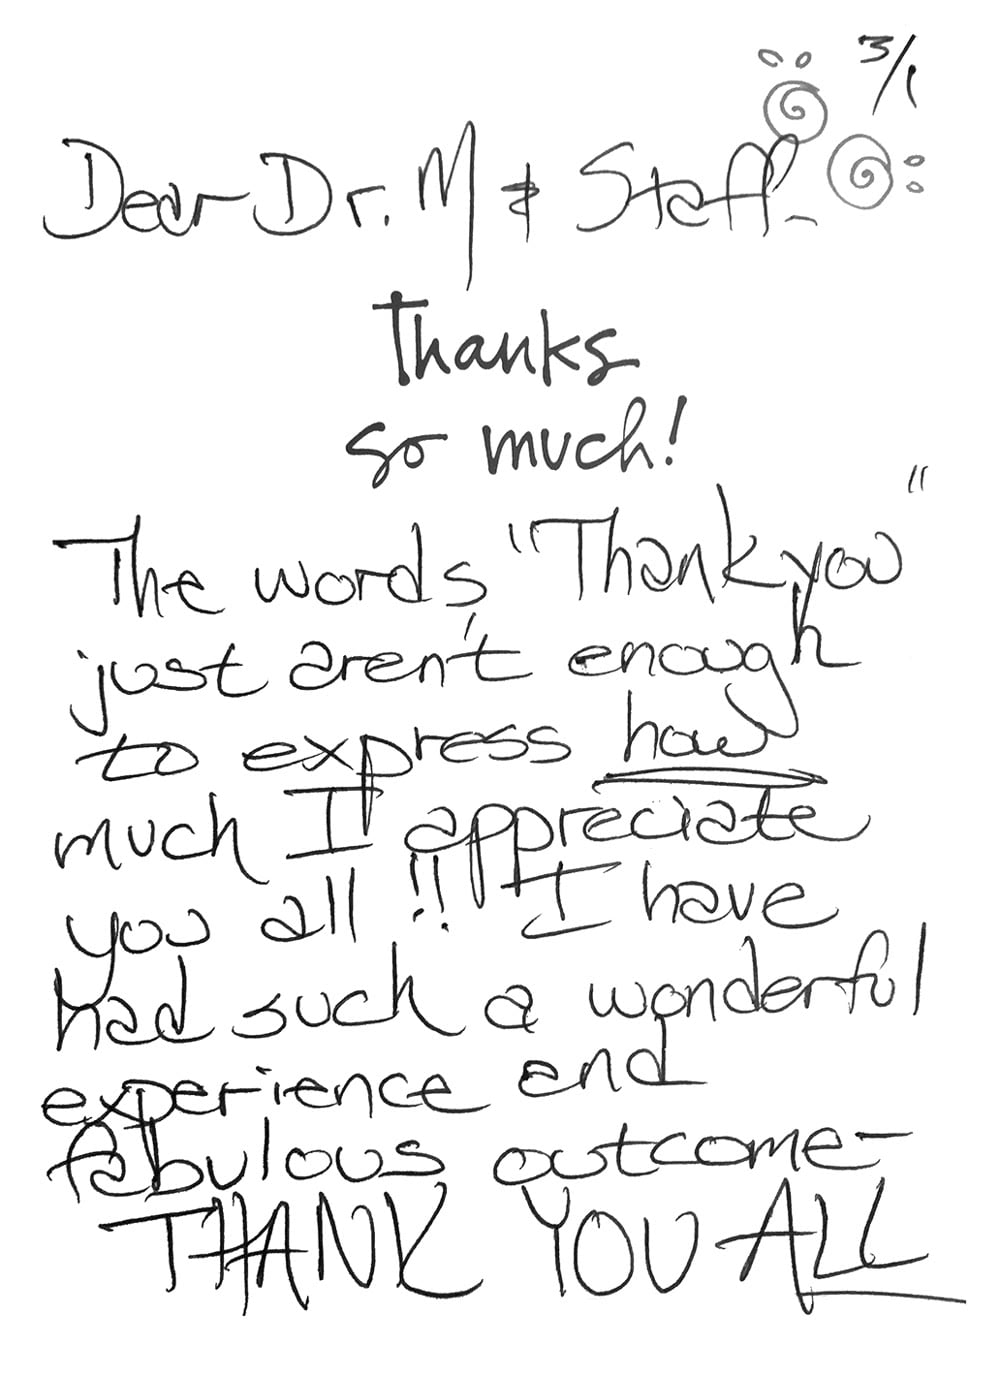 3/1
Dear Dr. M & Staff-
Thanks
so much!
The words "Thank you"
just aren't enough
to express how
much I appreciate
you all!! I have
had such a wonderful
experience and
fabulous outcome-
THANK YOU ALL